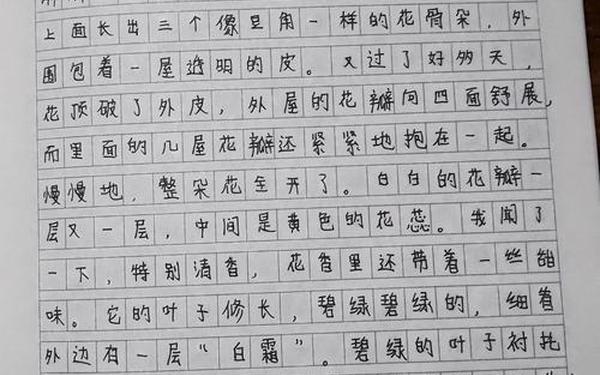 上面长出三个像豆角一样的花骨朵，外
围包着一屋透明的皮。又过了好多天，
花顶破了外皮，外屋的花瓣向四面舒展，
而里面的几屋花瓣还紧紧地抱在一起。
慢慢地，整朵花全开了。白白的花瓣一
层又一层，中间是黄色的花蕊。我闻了
一下，特别清香，花香里还带着一丝甜
味。它的叶子修长，碧绿碧绿的，细看
外边有一层“白霜”。碧绿的叶子衬托